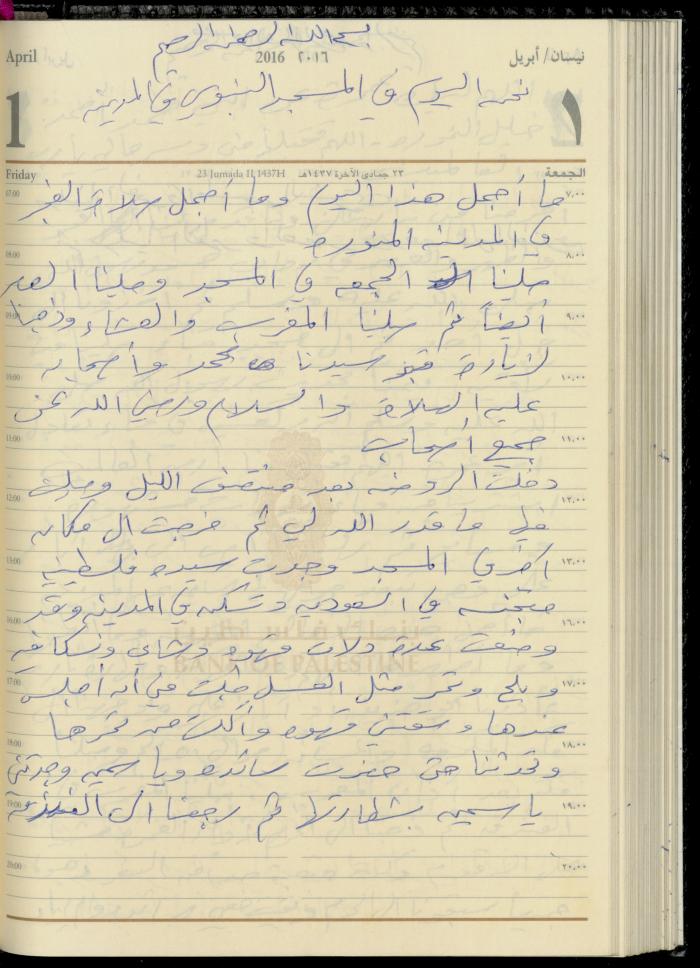 بسم الله الرحمن الرحيم
April
2016 ٢٠١٦
نيسان/ أبريل
نحن اليوم في المسجد النبوي في المدينه
1
١
Friday
23 Jumada II, 1437H
٢٣ جمادى الآخرة ١٤٣٧هـ
الجمعة
07:00 ما أجمل هذا اليوم وما أجمل صلاة الفجر ٧,٠٠
في المدينه المنورة
08:00 ٨,٠٠
صلينا الجمعه في المسجد وصلينا العصر
09:00 أيضاً ثم صلينا المغرب والعشاء وذهبنا ٩,٠٠
لزيارة قبر سيدنا محمد وأصحابه
10:00 ١٠,٠٠
عليه الصلاة والسلام ورضي الله عن
11:00 جميع أصحابه ١١,٠٠
دخلت الروضه بعد منتصف الليل وصليت
12:00 ١٢,٠٠
فيها ما قدر الله لي ثم خرجت الى مكان
13:00 اخر في المسجد وجدت سيده فلسطينيه ١٣,٠٠
متجنسه في السعوديه وتسكن في المدينه وقد
16:00 ١٦,٠٠
وضعت عدة دلات قهوه وشاي ونسكافيه
بنك فلسطين
BANK OF PALESTINE
17:00 وبلح وتمر مثل العسل طلبت مني أن أجلس ١٧,٠٠
عندها وسقتني قهوه وأكلت من تمرها
18:00 ١٨,٠٠
وتحدثنا حتى حضرت سائده وياسمين وجدتني
19:00 ياسمين بشطارتها ثم رجعنا الى ١٩,٠٠
20:00 ٢٠,٠٠